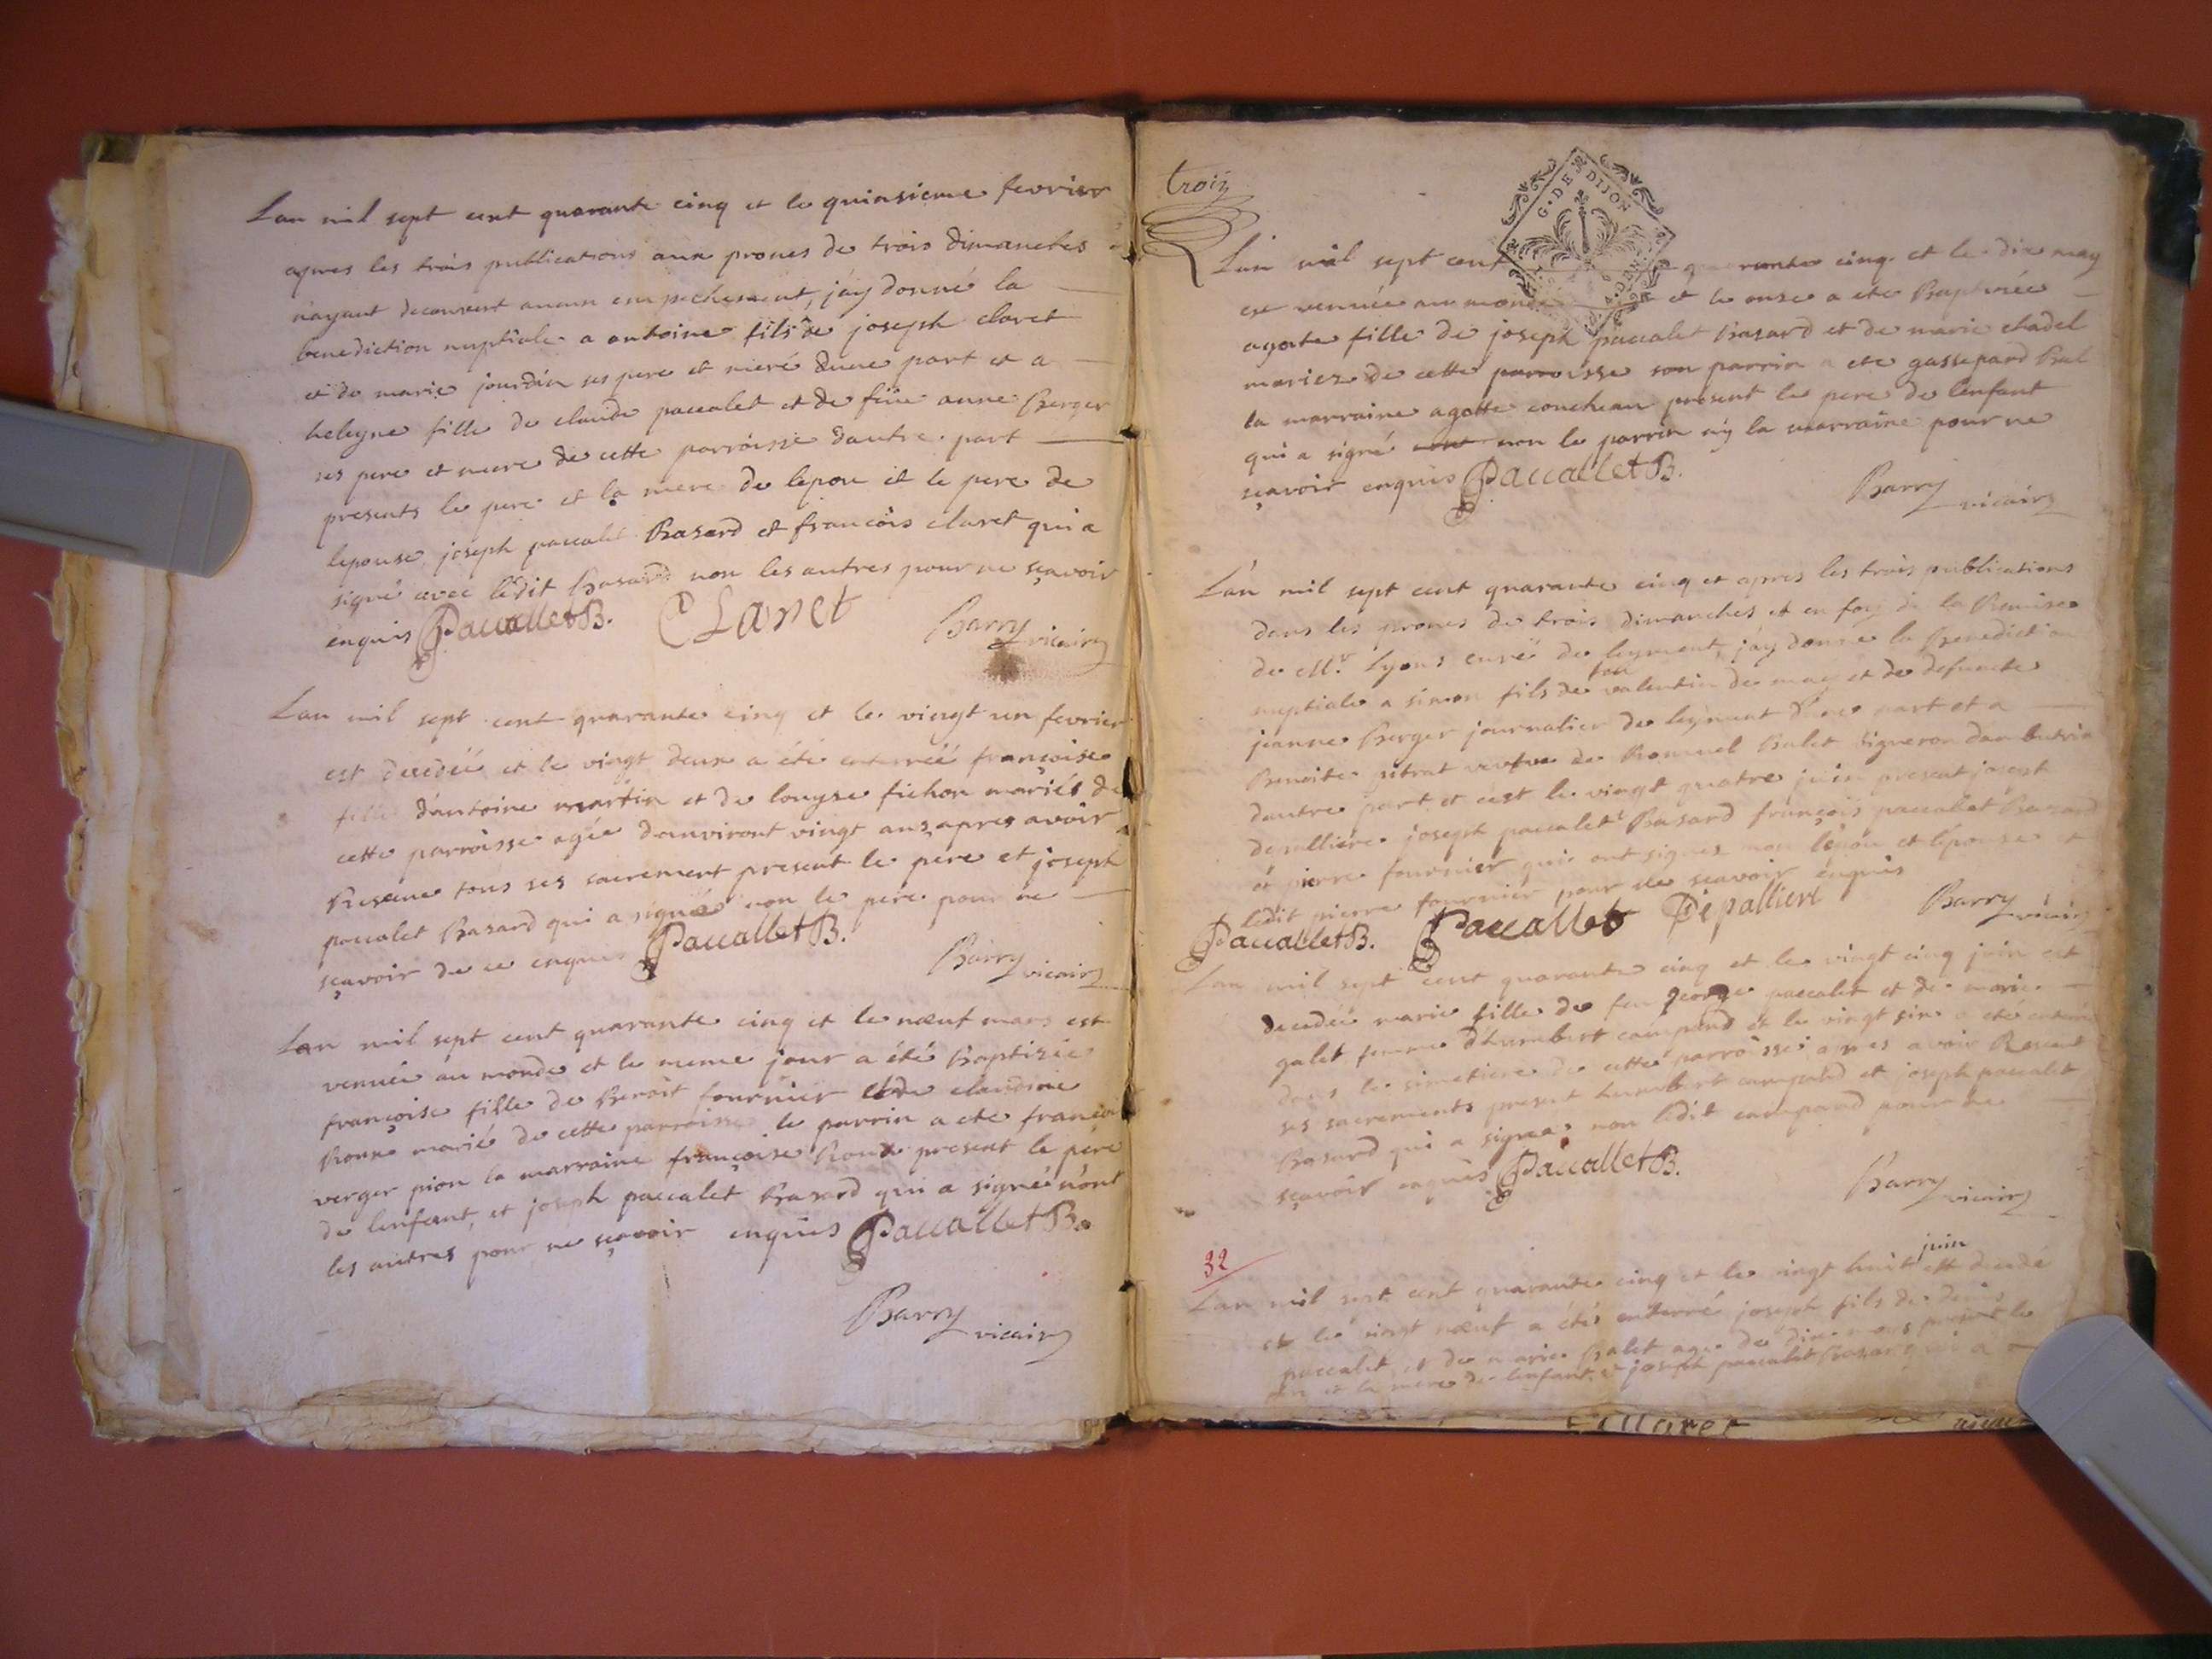 Lan mil sept cent quarante cinq et le quinsieme fevrier
apres les trois publications aux prones de trois dimanches
nayant decouvert aucun empechement, jáy donné la
benediction nuptiale a antoine fils de joseph claret
et de marie jourdán ses pere et meré dune part et a
heleyne fille de claude paccalet et de füe anne Berger
ses pere et mere de cette parroisse dautre part
presents le pere et la mere de lepou et le pere de
lepouse, joseph paccalet Basard et francöis claret qui a
signé avec lédit Basard non les autres pour ne sçavoir
enquis PaccalletB. CLaret Barry vicaire
Lan mil sept cent quarante cinq et le vingt un fevrier
est decedéé et le vingt deux a été enterréé françoise
fille dántoine martin et de louyse fichon mariés de
cette parroisse agée danviront vingt ans apres avoir
Reseue tous ses sacrement present le pere et joseph
paccalet Basard qui a signé non le pere pour ne
sçavoir de ce enquis PaccalletB. Barry vicaire
Lan mil sept cent quarante cinq et le nœuf mars est
venuée au monde et le meme jour a été Baptisée
françoise fille de Benoit fournier et de claudine
Roux marié de cette parroisse le parrin a ete françoi
verger pion la marraine françoise Roux present le pére
de lenfant, et joseph paccalet Basard qui a signé nónt
les autres pour ne sçavoir enquis PaccalletB.
Barry vicaire
trois
G. DE DIJON
Lán mil sept cent quarante cinq et le dix may
est venuée au monde et le onze a ete Baptisée
agate fille de joseph paccalet Basard et de marie chadel
mariez de cette parroisse son parrin a ete gassepard Bal
la marraine agatte concheau present le pere de lenfant
qui a signé non le parrin ny la marraine pour ne
sçavoir enquis PaccalletB. Barry vicaire
Lán mil sept cent quarante cinq et apres les trois publications
dans les prones de trois dimanches et en foy de la Remise
de Mr. Lyons curé de leyment, jáy donné la Benediction
nuptiale a simon fils de feu valentin de may et de defuncte
jeanne Berger journalier de leyment dune part et a
Benoite pitrat veufve de Romuel Balet vigneron dambutrix
dautre part et cest le vingt quatre juin present joseph
depalliere joseph paccalet Basard françois paccalet Basard
et pierre fournier qui ont signez non lépou et lépouse et
ledit pierre fournier pour ne sçavoir enquis
PaccalletB. Paccallet Depalliere Barry vicaire
Lan mil sept cent quarante cinq et le vingt cinq juin est
decedeé marie fille de feu george paccalet et de marie
galet femme dhumbert campand et le vingt six a été enterré
dans le simetiere de cette parroisse apres avoir Reseut
ses sacrements present humbert campand et joseph paccalet
Basard qui a signez non ledit campand pour ne
sçavoir enquis PaccalletB. Barry vicaire
32
Lan mil sept cent quarante cinq et le vingt huit juin est decedé
et le vingt nœuf a étés enterré joseph fils de denis
paccalet et de marie Balet age de dix mois present le
et la mere de lenfant, et joseph paccalet Basar qui a